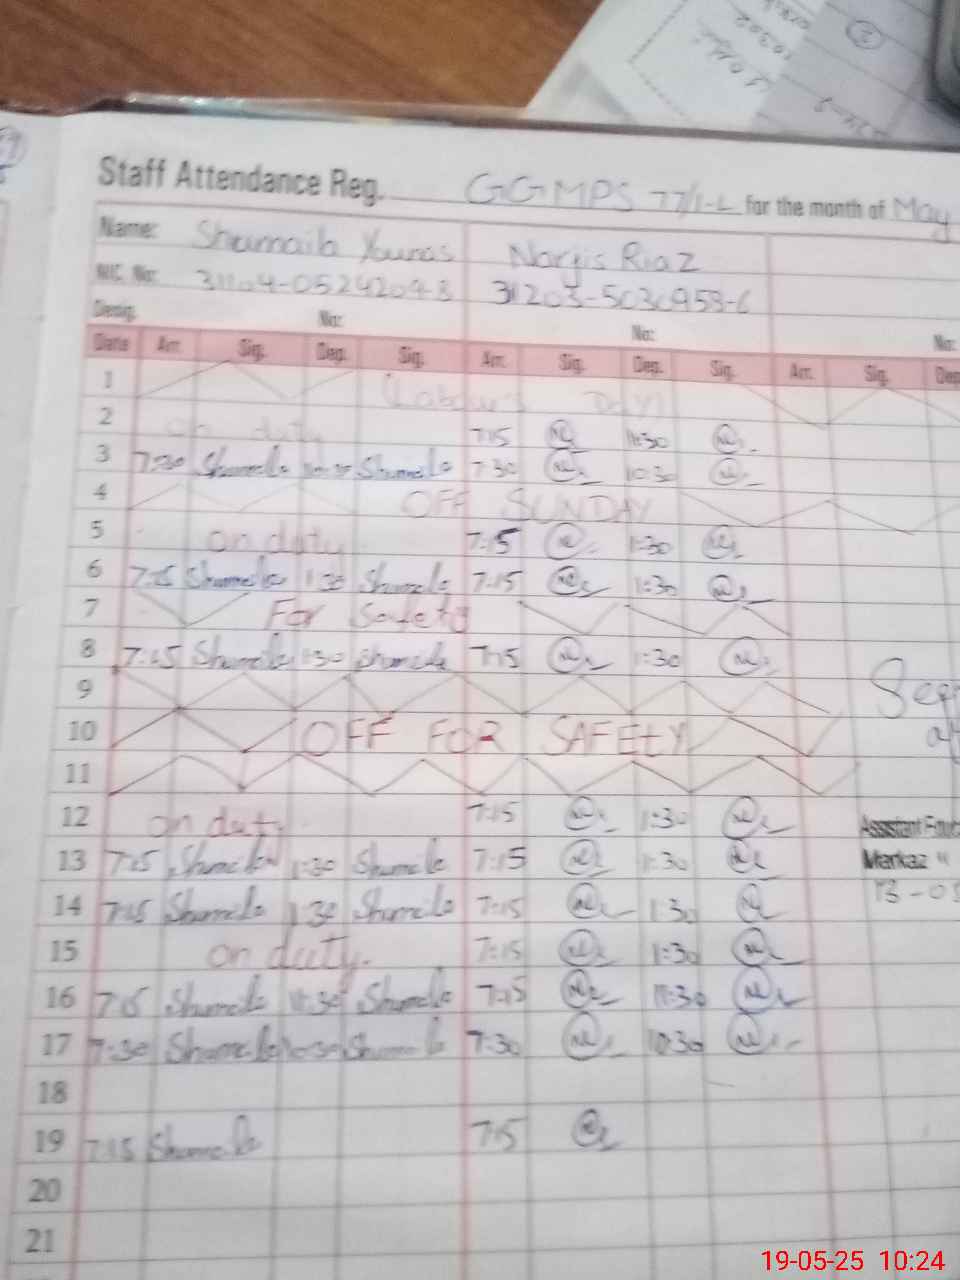 Staff Attendance Reg. GGMPS 77/1-L for the month of May
Name: Shumaila Younas Narjis Riaz
NIC No: 31203-5030958-6
Desig. No: No: No:
Date Arr. Sig. Dep. Sig. Arr. Sig. Dep. Sig. Arr. Sig. Dep
1 (Labour Day)
2 on duty 7:15 11:30
3 7:30 Shumaila 10:30 Shumaila 7:30 10:30
4 OFF SUNDAY
5 on duty 7:15 1:30
6 7:15 Shumaila 1:30 Shumaila 7:15 1:30
7 For Safety
8 7:15 Shumaila 1:30 Shumaila 7:15 1:30
9
10 OFF FOR SAFEtY
11
12 on duty 7:15 1:30
Assistant
13 7:15 Shumaila 1:30 Shumaila 7:15 1:30 Markaz
14 7:15 Shumaila 1:30 Shumaila 7:15 1:30
15 on duty. 7:15 1:30
16 7:15 Shumaila 11:30 Shumaila 7:15 11:30
17 7:30 Shumaila 10:30 Shumaila 7:30 10:30
18
19 7:15 Shumaila 7:15
20
21
19-05-25 10:24